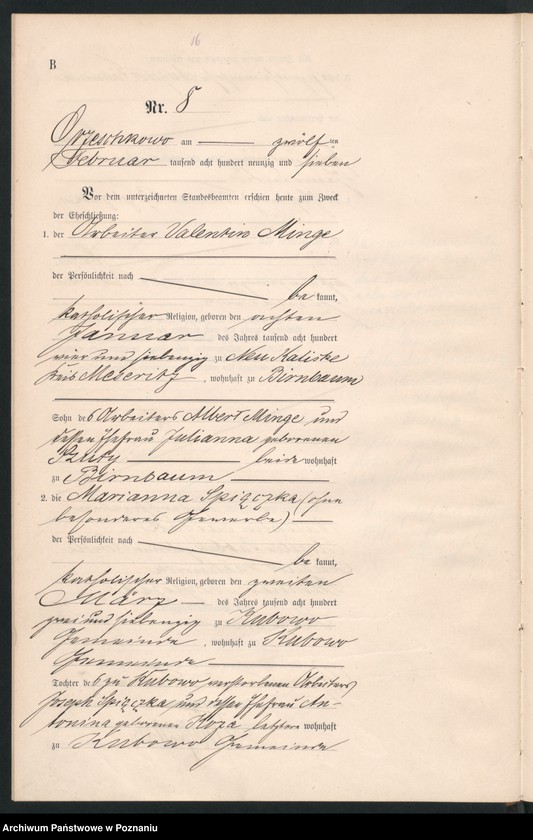 16
B
Nr. 8
Orzeschkowo am zwölf ten
Februar tausend acht hundert neunzig und sieben
Vor dem unterzeichneten Standesbeamten erschien heute zum Zweck
der Eheschließung:
1. der Arbeiter Valentin Minge
der Persönlichkeit nach
be kannt,
katholischer Religion, geboren den achten
Januar des Jahres tausend acht hundert
vier und siebenzig zu Neu Kaliske
Kreis Meseritz, wohnhaft zu Birnbaum
Sohn des Arbeiters Albert Minge und
dessen Ehefrau Julianna geborenen
beide wohnhaft
zu Birnbaum
2. die Marianna Spiączka (ohne
besonderes Gewerbe)
der Persönlichkeit nach
be kannt,
katholischer Religion, geboren den zweiten
März des Jahres tausend acht hundert
und siebenzig zu Kubowo
Gemeinde, wohnhaft zu Kubowo
Gemeinde
Tochter des zu Kubowo verstorbenen Arbeiters
Joseph Spiączka und dessen Ehefrau An-
tonina geborenen Koza letztere wohnhaft
zu Kubowo Gemeinde
Archiwum Państwowe w Poznaniu